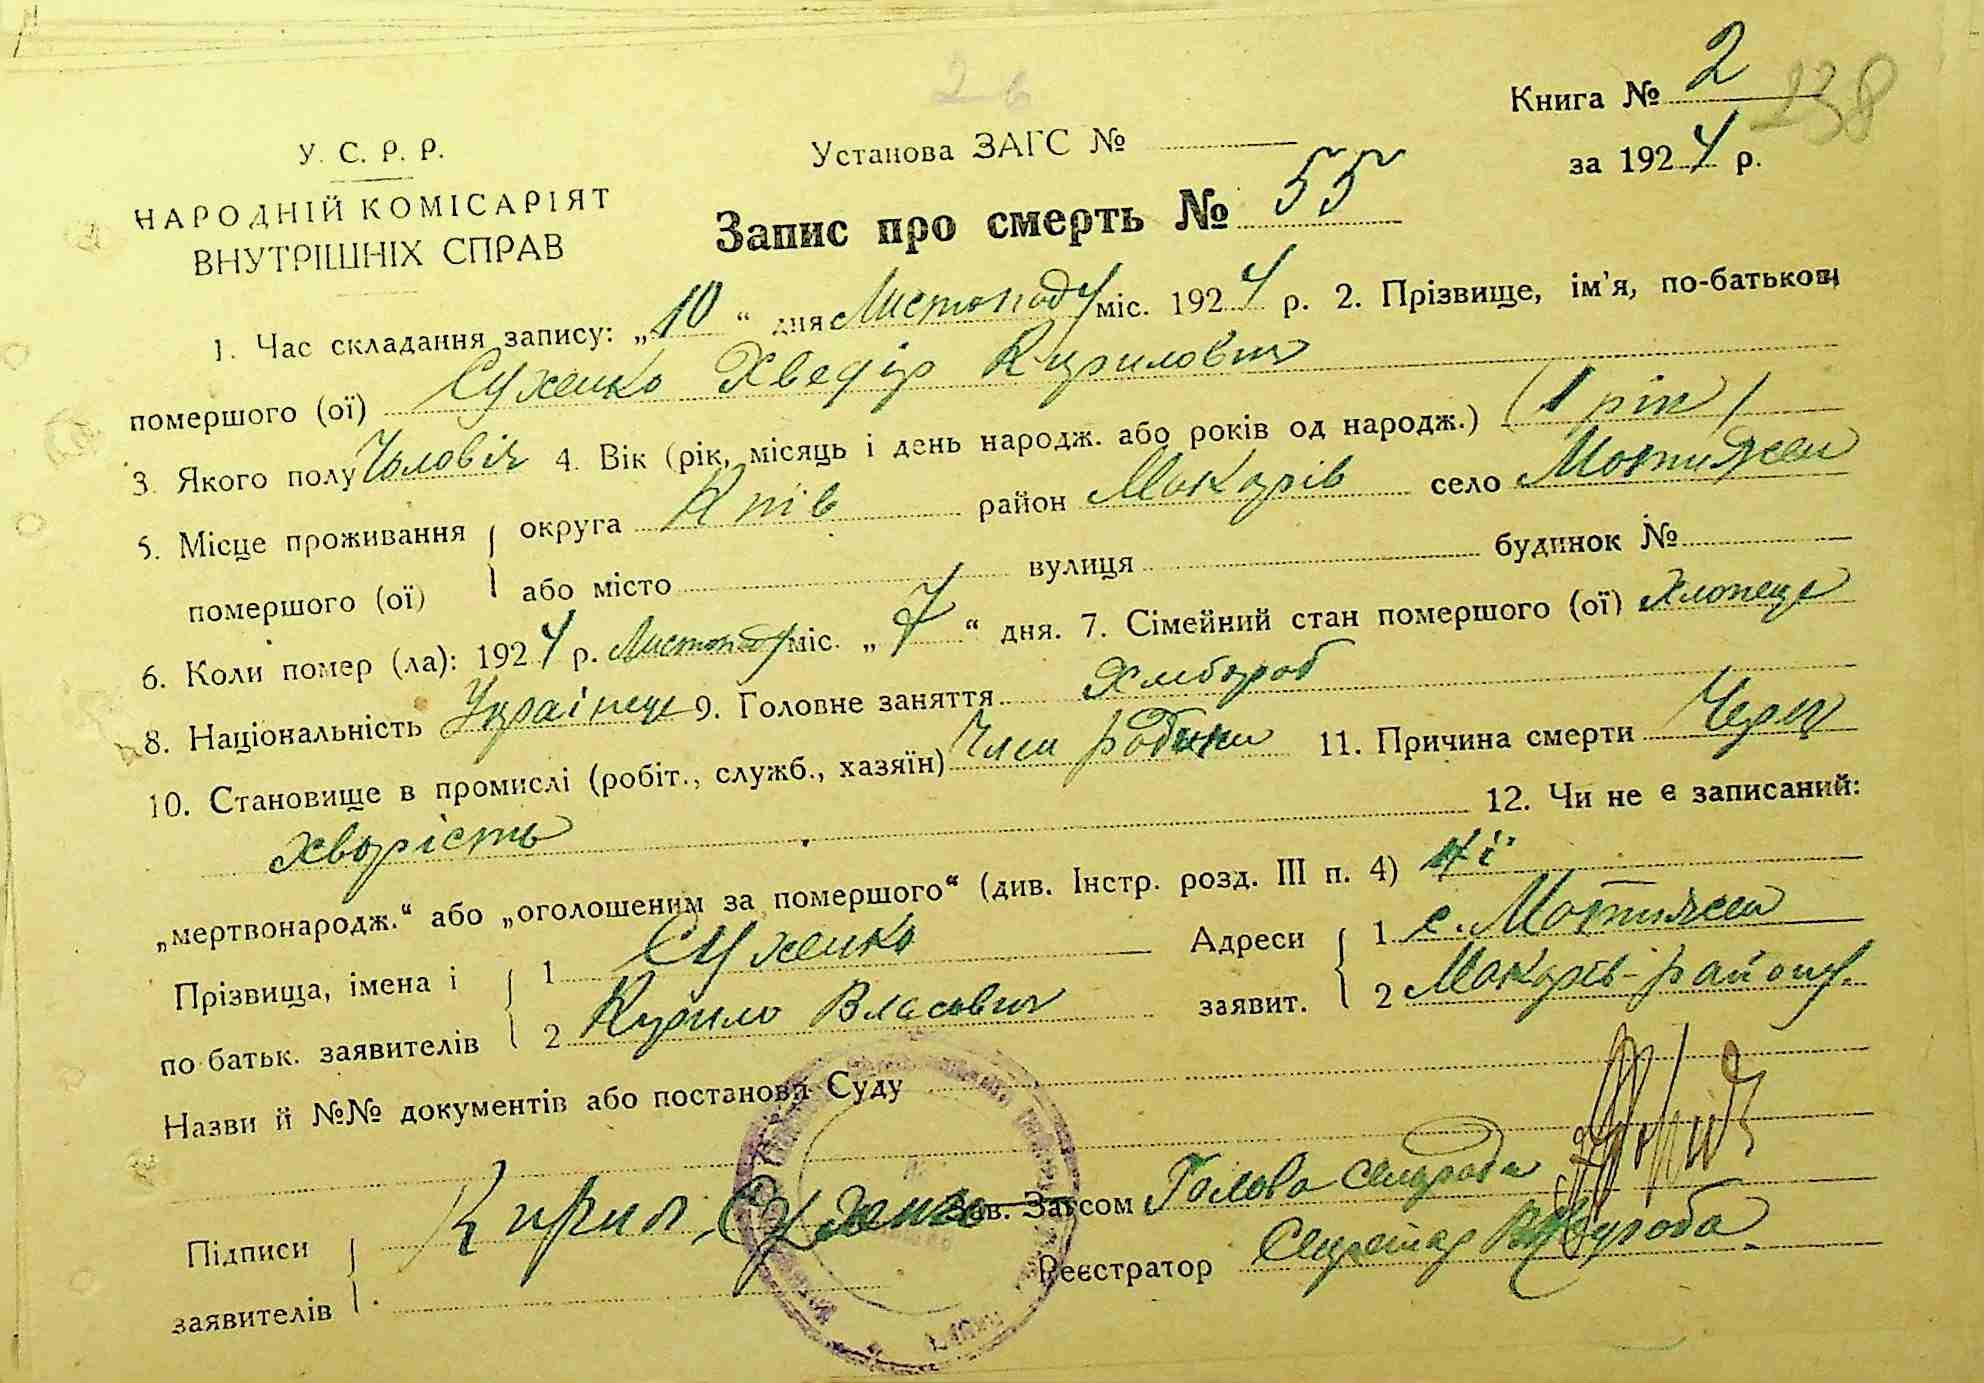 Книга № 2
238
У. С. Р. Р.
Установа ЗАГС №
за 1924 р.
НАРОДНІЙ КОМІСАРІЯТ
ВНУТРІШНІХ СПРАВ
Запис про смерть № 55
1. Час складання запису: „10“ дня Листопаду міс. 1924 р. 2. Прізвище, ім'я, по-батькові
помершого (ої) Сухенко Хведір Кирилович
3. Якого полу Чоловіч 4. Вік (рік, місяць і день народж. або років од народж.) (1 рік)
5. Місце проживання округа Київ район Макарів село Мотижен
помершого (ої) або місто вулиця будинок №
6. Коли помер (ла): 1924 р. Листопаду міс. „7“ дня. 7. Сімейний стан помершого (ої) Хлопець
8. Національність Українець 9. Головне заняття Хлибороб
10. Становище в промислі (робіт., служб., хазяїн) Член родини 11. Причина смерти Черев
хворість 12. Чи не є записаний:
„мертвонародж.“ або „оголошеним за помершого“ (див. Інстр. розд. III п. 4) Ні
Прізвища, імена і 1 Сухенко Адреси 1 с. Мотижен
по батьк. заявителів 2 Кирило Власович заявит. 2 Макарів-району.
Назви й №№ документів або постанови Суду
Підписи Кирил Сухенко Зав. Загсом Голова сільради
заявителів Реєстратор Секретар